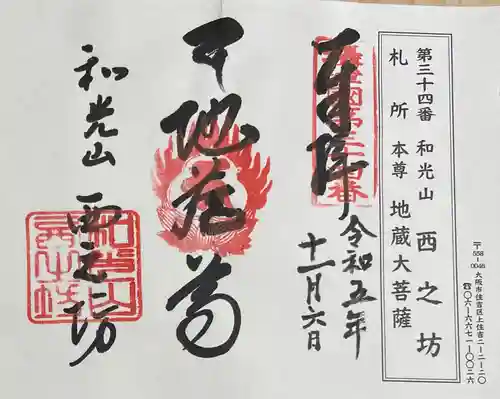 第三十四番 和光山 西之坊
札所本尊 地蔵大菩薩
〒558-0046 大阪市住吉区上住吉二-二-二〇
☎〇六-六六七一-〇〇二六
奉拝
令和五年
十一月六日
地蔵尊
和光山 西之坊
和光山西之坊